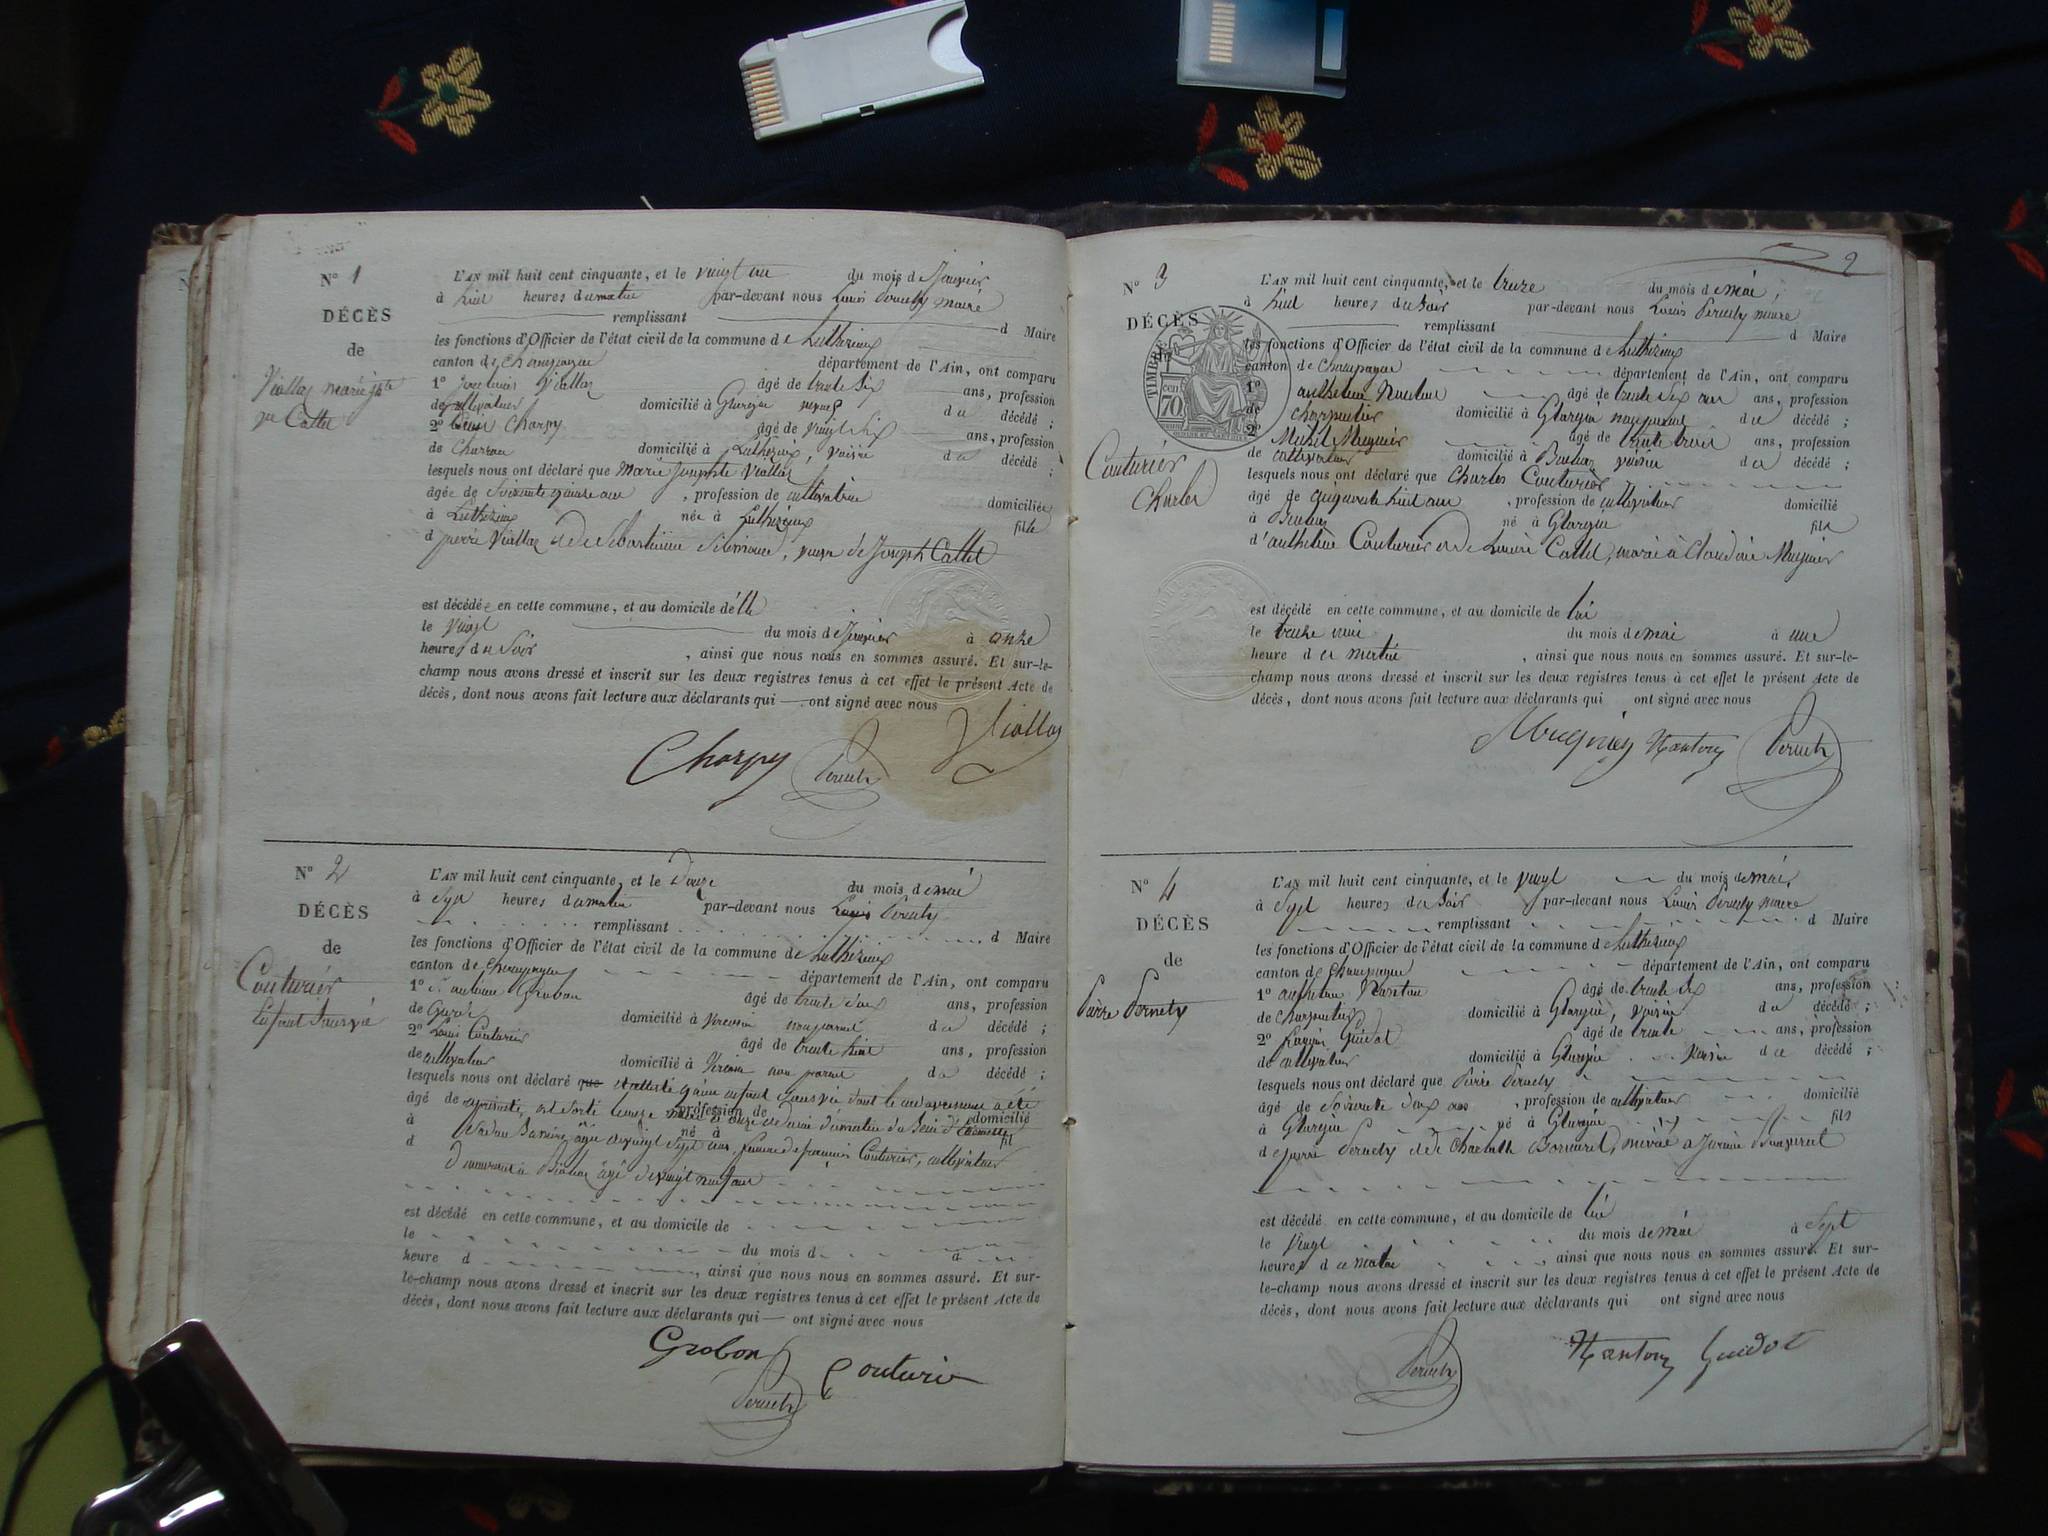 N° 1
DÉCÈS
de
Viallaz marie jte
ve Cattet
L'AN mil huit cent cinquante, et le vingt un du mois de Janvier
à huit heures du matin par-devant nous Louis Pernety maire
remplissant d Maire
les fonctions d'Officier de l'état civil de la commune de Luthézieux
canton de champagne département de l'Ain, ont comparu
1° Viallaz âgé de trente six ans, profession
de cultivateur domicilié à du décédé ;
2° Louis Charpy âgé de vingt six ans, profession
de charron domicilié à Luthézieux, voisin du décédé ;
lesquels nous ont déclaré que Marie Josephte Viallaz
âgée de soixante quinze ans, profession de cultivatrice domiciliée
à Luthézieux née à Luthézieux fille
d pierre Viallaz et de Sébastienne, veuve de Joseph Cattet
est décédée en cette commune, et au domicile d'elle
le vingt du mois de Janvier à onze
heures du Soir, ainsi que nous nous en sommes assuré. Et sur-le-
champ nous avons dressé et inscrit sur les deux registres tenus à cet effet le présent Acte de
décès, dont nous avons fait lecture aux déclarants qui — ont signé avec nous
Charpy Pernety Viallaz
N° 2
DÉCÈS
de
Couturier
Enfant Sans vie
L'AN mil huit cent cinquante, et le Douze du mois de mai
à Sept heures du matin par-devant nous Louis Pernety
remplissant d Maire
les fonctions d'Officier de l'état civil de la commune de Luthézieux
canton de champagne département de l'Ain, ont comparu
1° antoine Grobon âgé de trente deux ans, profession
de Garde domicilié à non parent du décédé ;
2° Louis Couturier âgé de trente huit ans, profession
de cultivateur domicilié à non parent du décédé ;
lesquels nous ont déclaré que qu'un enfant Sans vie dont le a été
âgé de profession de domicilié
à né à
d fil
âgée de vingt Sept ans, femme de françois Couturier, cultivateur
âgé de vingt neuf ans
est décédé en cette commune, et au domicile de
le du mois d
heure d à
, ainsi que nous nous en sommes assuré. Et sur-
le-champ nous avons dressé et inscrit sur les deux registres tenus à cet effet le présent Acte de
décès, dont nous avons fait lecture aux déclarants qui — ont signé avec nous
Grobon
Pernety Couturier
2
N° 3
DÉCÈS
de
TIMBRE
70
Couturier
Charles
L'AN mil huit cent cinquante, et le treize du mois de mai,
à huit heures du Soir par-devant nous Louis Pernety maire
remplissant d Maire
les fonctions d'Officier de l'état civil de la commune de Luthézieux
canton de Champagne département de l'Ain, ont comparu
1° anthelme Nantou âgé de trente Six ans, profession
de charpentier domicilié à non parent du décédé ;
2° Michel Mugnier âgé de trente trois ans, profession
de cultivateur domicilié à voisin du décédé ;
lesquels nous ont déclaré que Charles Couturier
âgé de cinquante huit ans, profession de cultivateur domicilié
à né à fils
d'anthelme Couturier et de Cattet, marié à Claudine Mugnier
est décédé en cette commune, et au domicile de lui
le du mois de mai à une
heure du matin, ainsi que nous nous en sommes assuré. Et sur-le-
champ nous avons dressé et inscrit sur les deux registres tenus à cet effet le présent Acte de
décès, dont nous avons fait lecture aux déclarants qui ont signé avec nous
Mugnier Pernety
N° 4
DÉCÈS
de
Pierre Pernety
L'AN mil huit cent cinquante, et le vingt du mois de mai,
à Sept heures du Soir par-devant nous Louis Pernety maire
remplissant d Maire
les fonctions d'Officier de l'état civil de la commune de Luthézieux
canton de Champagne département de l'Ain, ont comparu
1° anthelme Nantou âgé de trente six ans, profession
de charpentier domicilié à, voisin du décédé ;
2° Guidot âgé de trente ans, profession
de cultivateur domicilié à voisin du décédé ;
lesquels nous ont déclaré que Pierre Pernety
âgé de Soixante deux ans, profession de cultivateur domicilié
à né à fils
de pierre Pernety et de marié à
est décédé en cette commune, et au domicile de lui
le vingt du mois de mai à Sept
heures du matin, ainsi que nous nous en sommes assuré. Et sur-
le-champ nous avons dressé et inscrit sur les deux registres tenus à cet effet le présent Acte de
décès, dont nous avons fait lecture aux déclarants qui ont signé avec nous
Pernety Guidot